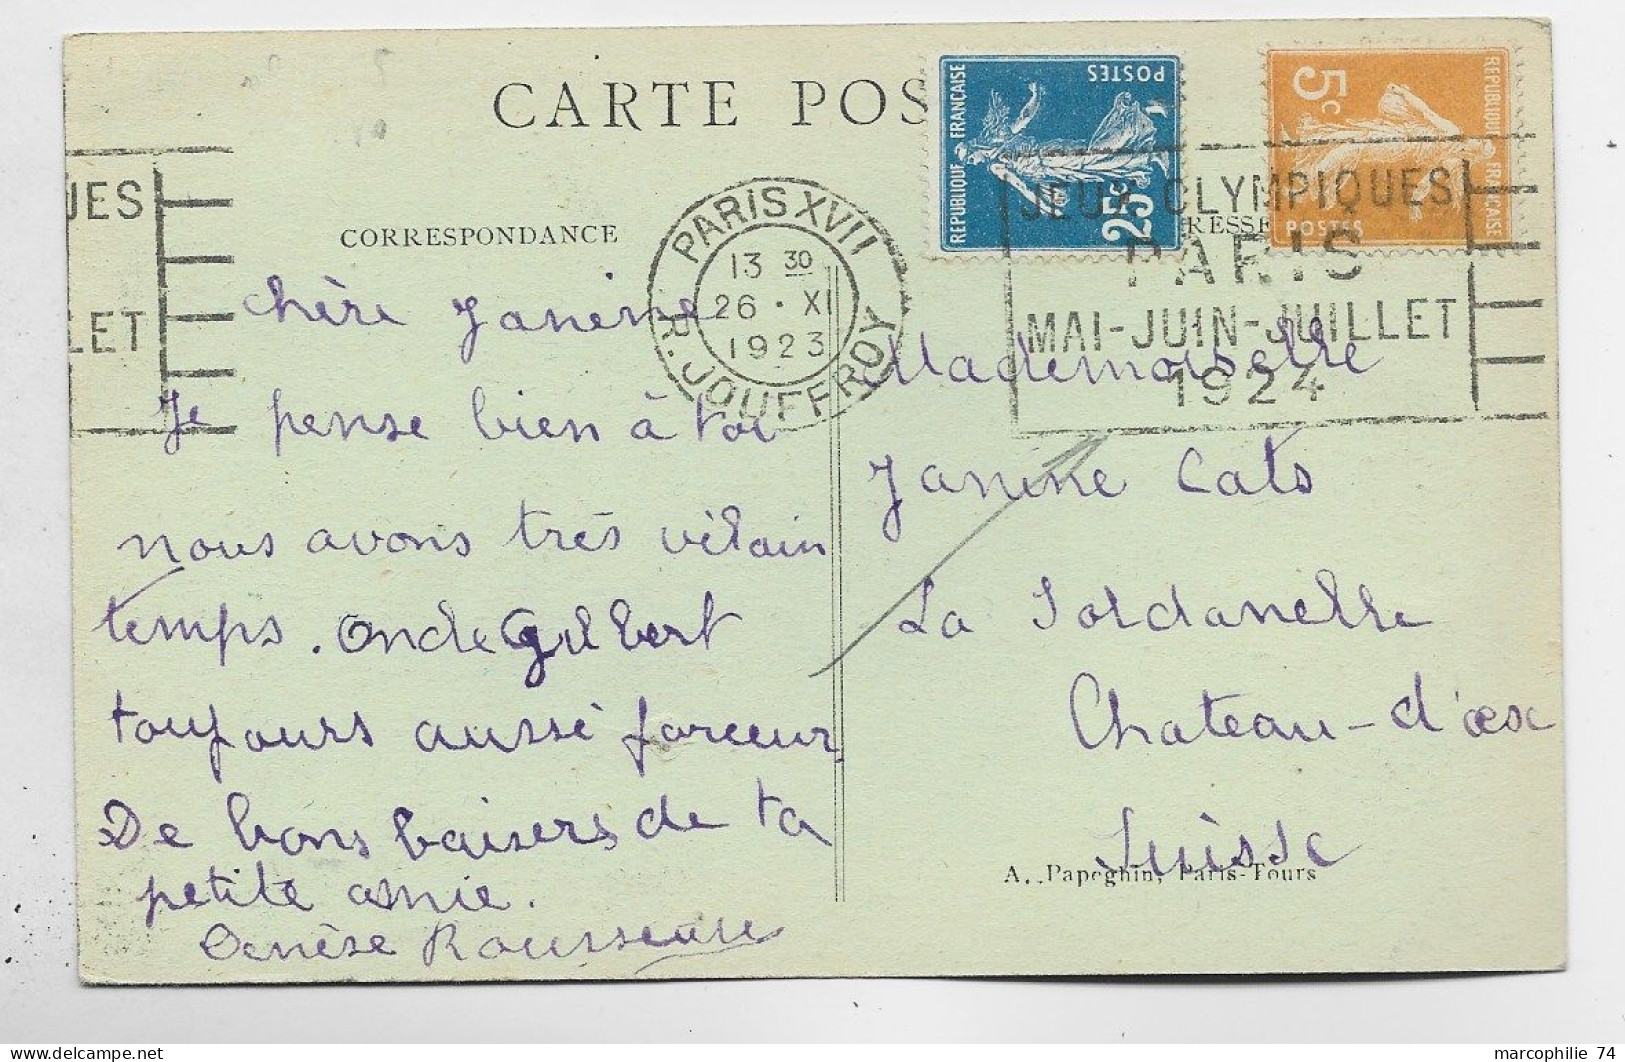 CARTE POS
CORRESPONDANCE
RESSE
REPUBLIQUE FRANCAISE
POSTES
25c
REPUBLIQUE FRANCAISE
5c
POSTES
UES
LET
PARIS XVII
13 30
26 · XI
1923
R. JOUFFROY
JEUX OLYMPIQUES
PARIS
MAI-JUIN-JUILLET
1924
chère Janine
Je pense bien à toi
nous avons très vilain
temps. Oncle Gilbert
toujours aussi farceur
De bons baisers de ta
petite amie.
Rousseau
Mademoiselle
Janine Cats
La
Chateau-d'œx
Suisse
A. Papeghin, Paris-Tours
marcophilie 74